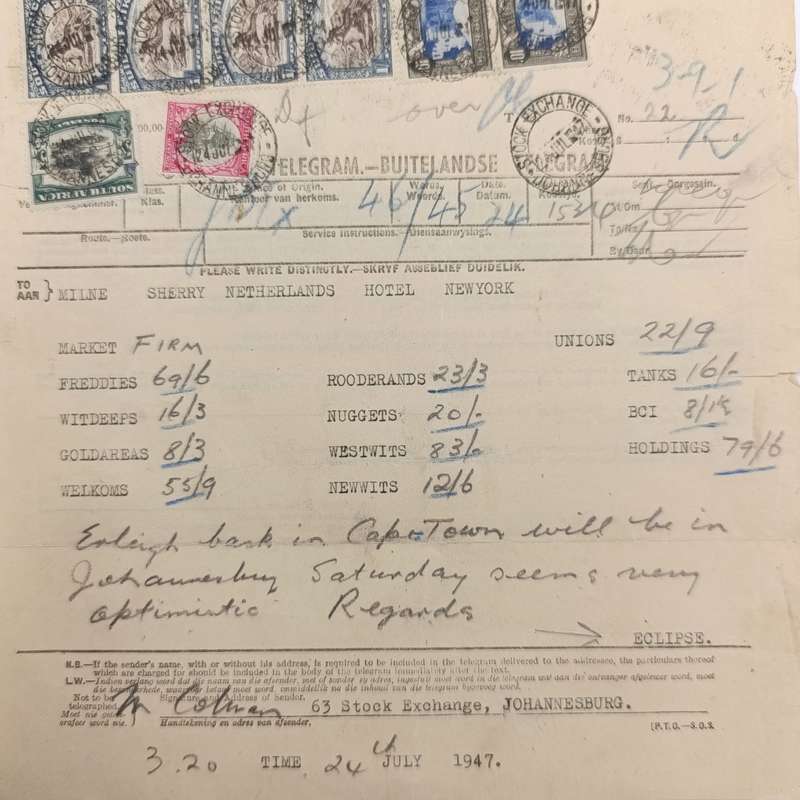 STOCK EXCHANGE
JOHANNESBURG
SOUTH AFRICA
24 JUL
over
391
STOCK EXCHANGE
JOHANNESBURG
No. 22
TELEGRAM.—BUITELANDSE
Class. Klas.
Office of Origin. Kantoor van herkoms.
Words. Woorde.
Date. Datum.
46/45 24
Sent. Oorgesein.
Route.—Roete.
Service Instructions.—Diensaanwysings.
PLEASE WRITE DISTINCTLY.—SKRYF ASSEBLIEF DUIDELIK.
TO AAN } MILNE SHERRY NETHERLANDS HOTEL NEWYORK
MARKET FIRM UNIONS 22/9
FREDDIES 69/6 ROODERANDS 23/3 TANKS 16/-
WITDEEPS 16/3 NUGGETS 20/- BCI
GOLDAREAS 8/3 WESTWITS 83/- HOLDINGS 79/6
WELKOMS 55/9 NEWWITS 12/6
Erleigh back in Cape Town will be in
Johannesburg Saturday seems very
optimistic Regards
ECLIPSE.
N.B.—If the sender's name, with or without his address, is required to be included in the telegram delivered to the addressee, the particulars thereof
which are charged for should be included in the body of the telegram immediately after the text.
L.W.—Indien verlang word dat die naam van die afsender, met of sonder sy adres, ingesluit moet word in die telegram wat aan die ontvanger afgelewer word, moet
Not to be telegraphed.
Signature and Address of Sender.
63 Stock Exchange, JOHANNESBURG.
Handtekening en adres van afsender.
[P.T.O.—S.O.S.
3.20 TIME 24th JULY 1947.